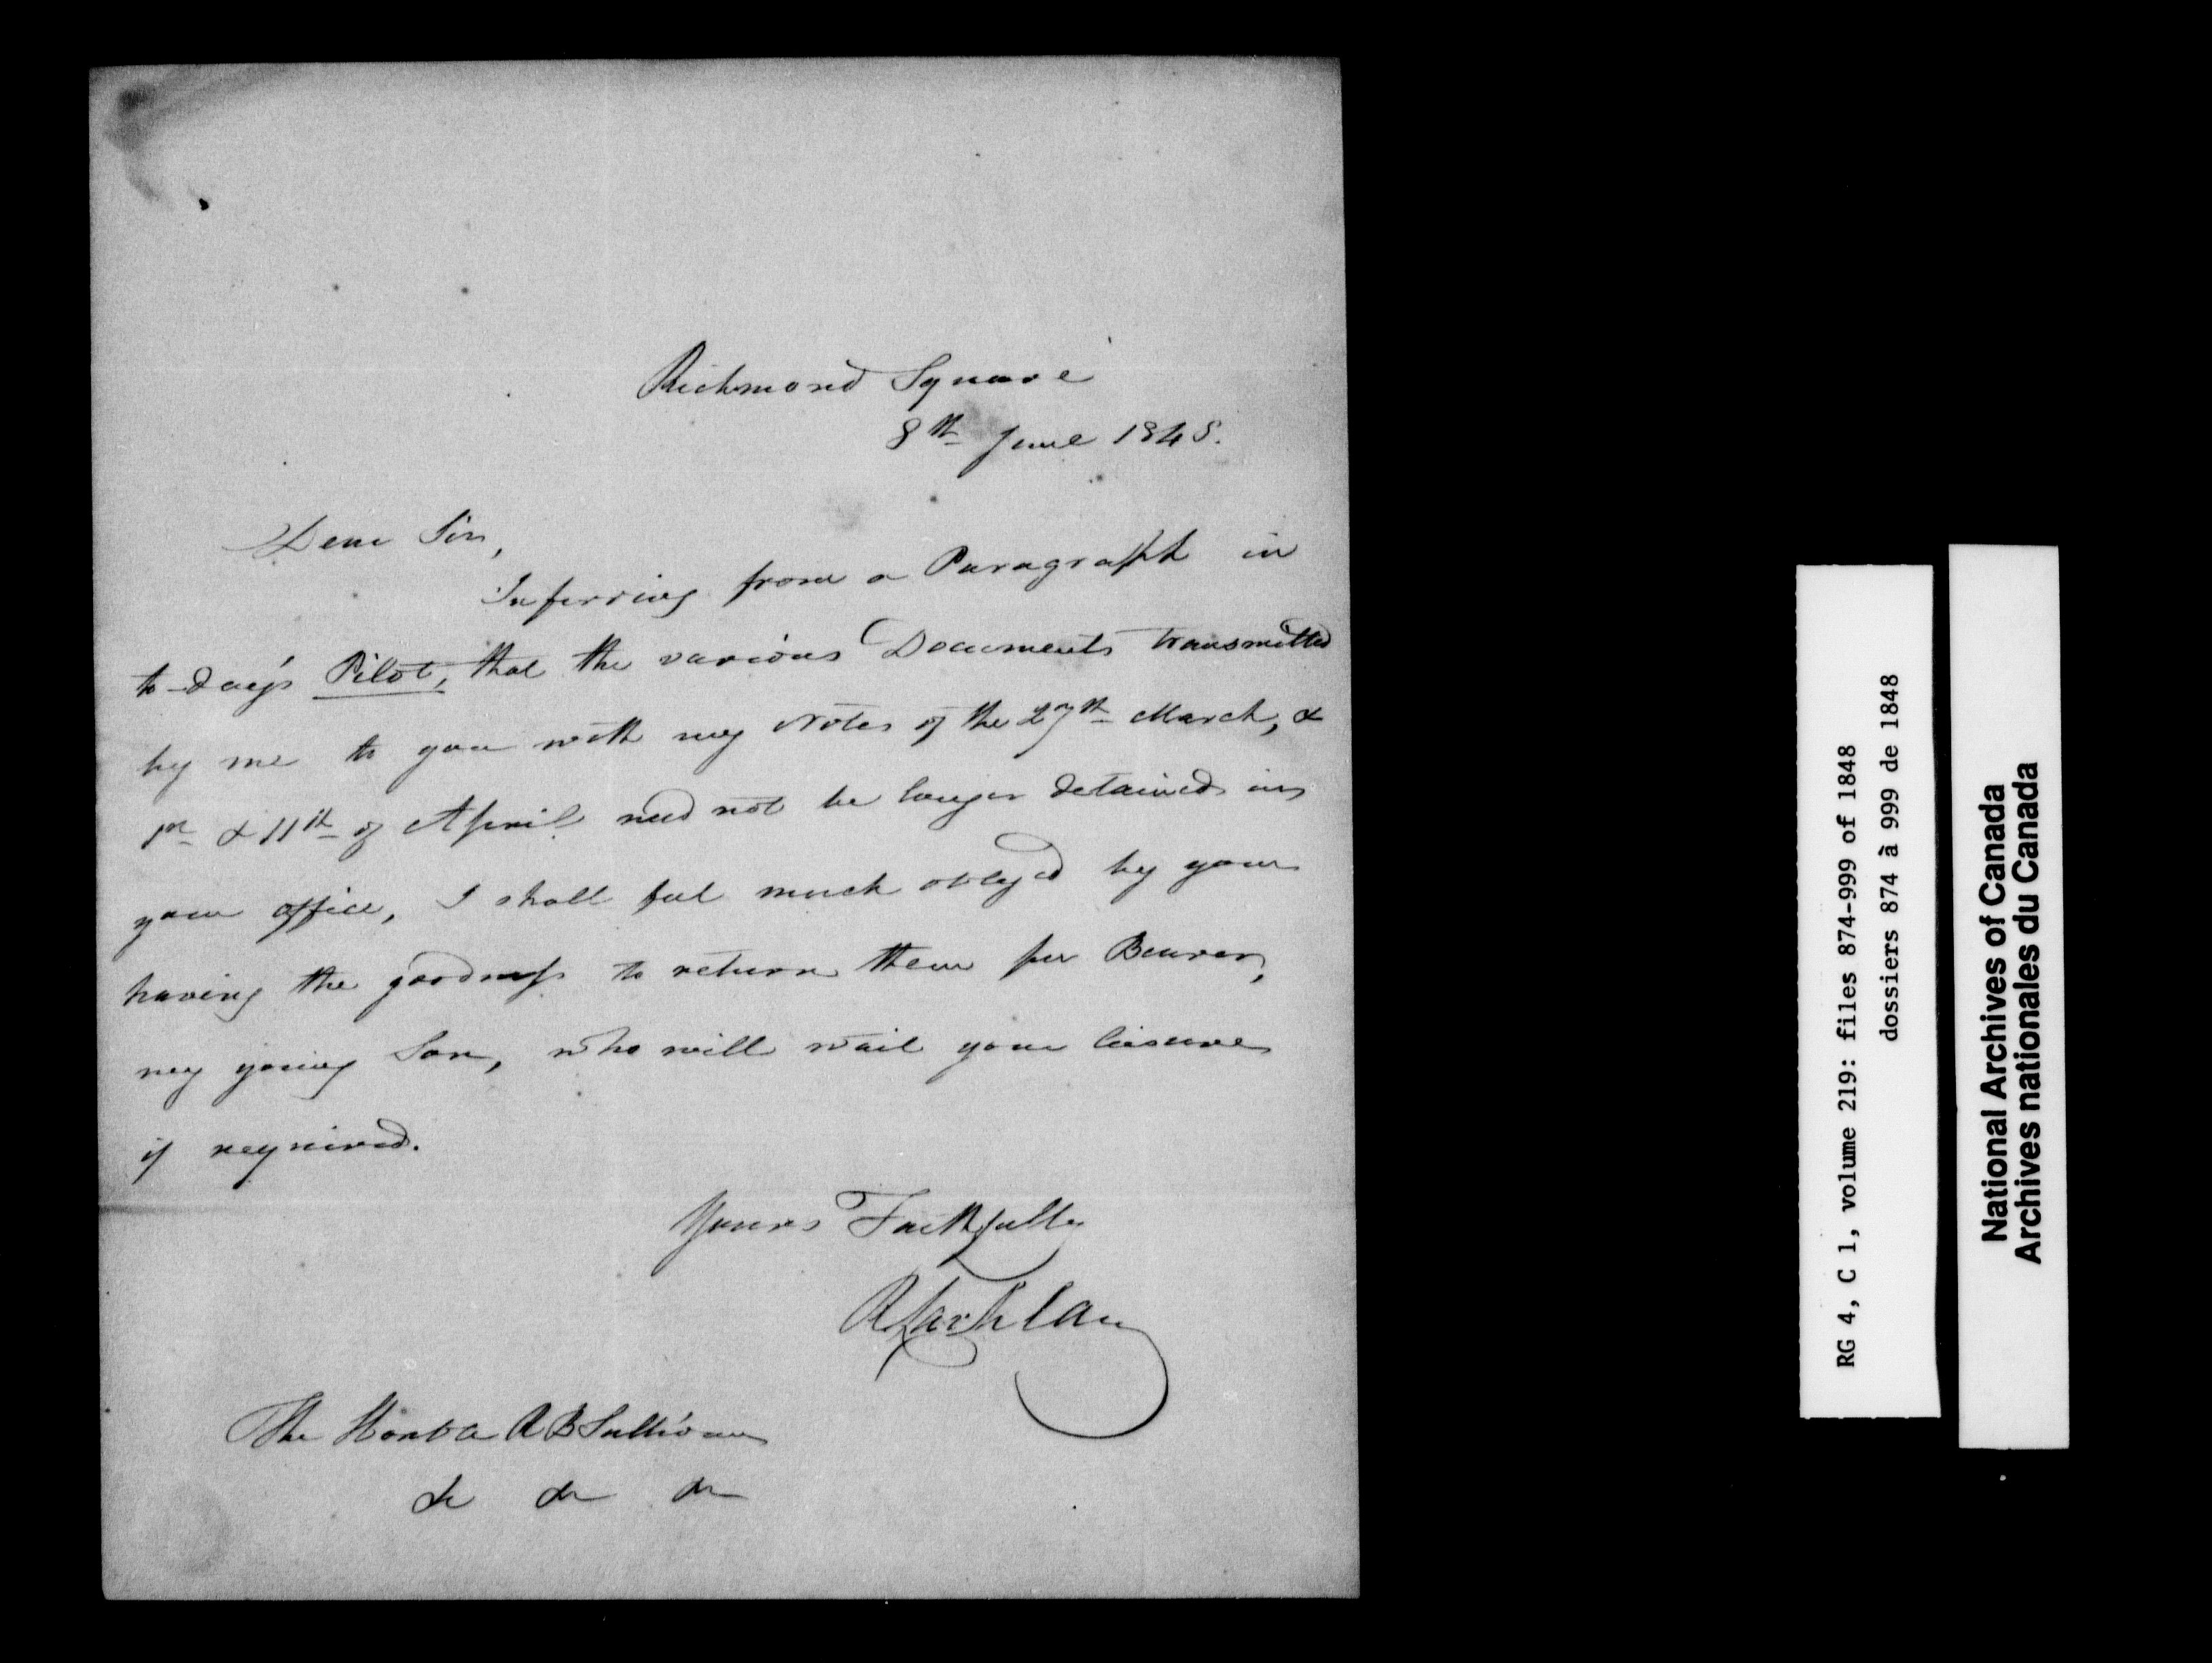 Richmond Square
8th June 1848.
Dear Sir,
Inferring from a Paragraph in
to-day's Pilot, that the various Documents transmitted
by me to you with my Notes of the 27th March, &
1st & 11th of April need not be longer detained in
your office, I shall feel much obliged by your
having the goodness to return them per Bearer,
my young Son, who will wait your leisure
if required.
Yours Faithfully
R Lachlan
The Honble R B Sullivan
&c &c &c
RG 4, C 1, volume 219: files 874-999 of 1848
dossiers 874 à 999 de 1848
National Archives of Canada
Archives nationales du Canada